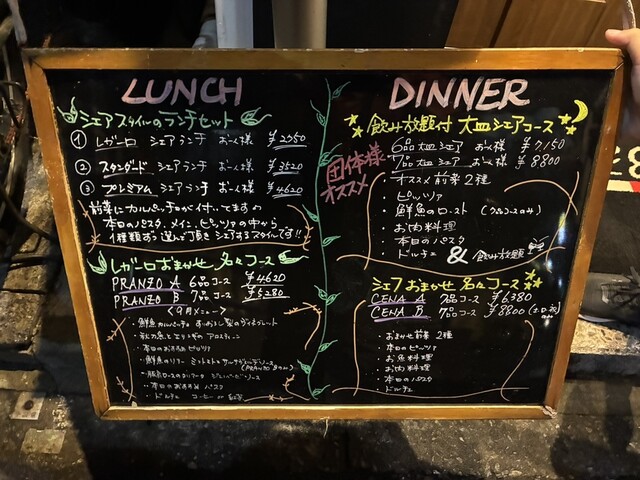 LUNCH
シェアスタイルのランチセット
① レガーロ シェアランチ お一人様 ¥2750
② スタンダード シェアランチ お一人様 ¥3520
③ プレミアム シェアランチ お一人様 ¥4620
前菜にカルパッチョが付いてます
本日のパスタ、メイン、ピッツァの中から
1種類ずつ選んで頂きシェアするスタイルです!!
レガーロおまかせ 名々コース
PRANZO A 6品コース ¥4620
PRANZO B 7品コース ¥5280
<9月メニュー>
・鮮魚カルパッチョ
・本日のおすすめピッツァ
(PRANZO Bのみ)
・本日のおすすめ パスタ
・ドルチェ コーヒー or 紅茶
団体様
オススメ
DINNER
飲み放題付 大皿シェアコース
6品大皿シェア お一人様 ¥7150
7品大皿シェア お一人様 ¥8800
・オススメ前菜2種
・ピッツァ
・鮮魚のロースト (7品コースのみ)
・お肉料理
・本日のパスタ
・ドルチェ & 飲み放題
シェフおまかせ 名々コース
CENA A 7品コース ¥6380
CENA B 7品コース ¥8800
・おまかせ前菜2種
・本日のピッツァ
・お魚料理
・お肉料理
・本日のパスタ
・ドルチェ